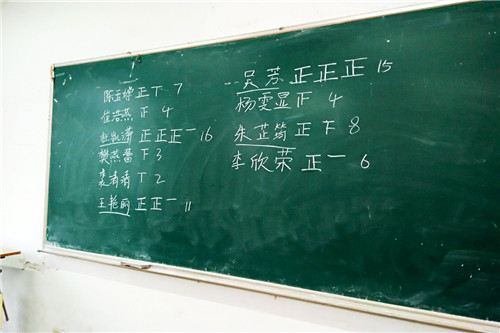 陈玉婷 正丅 7
崔浩燕 正 4
潇 正正正一 16
樊燕蕾 下 3
袁青青 丅 2
王艳丽 正正一 11
吴芳 正正正 15
杨雯显 正 4
朱芷筠 正下 8
李欣荣 正一 6